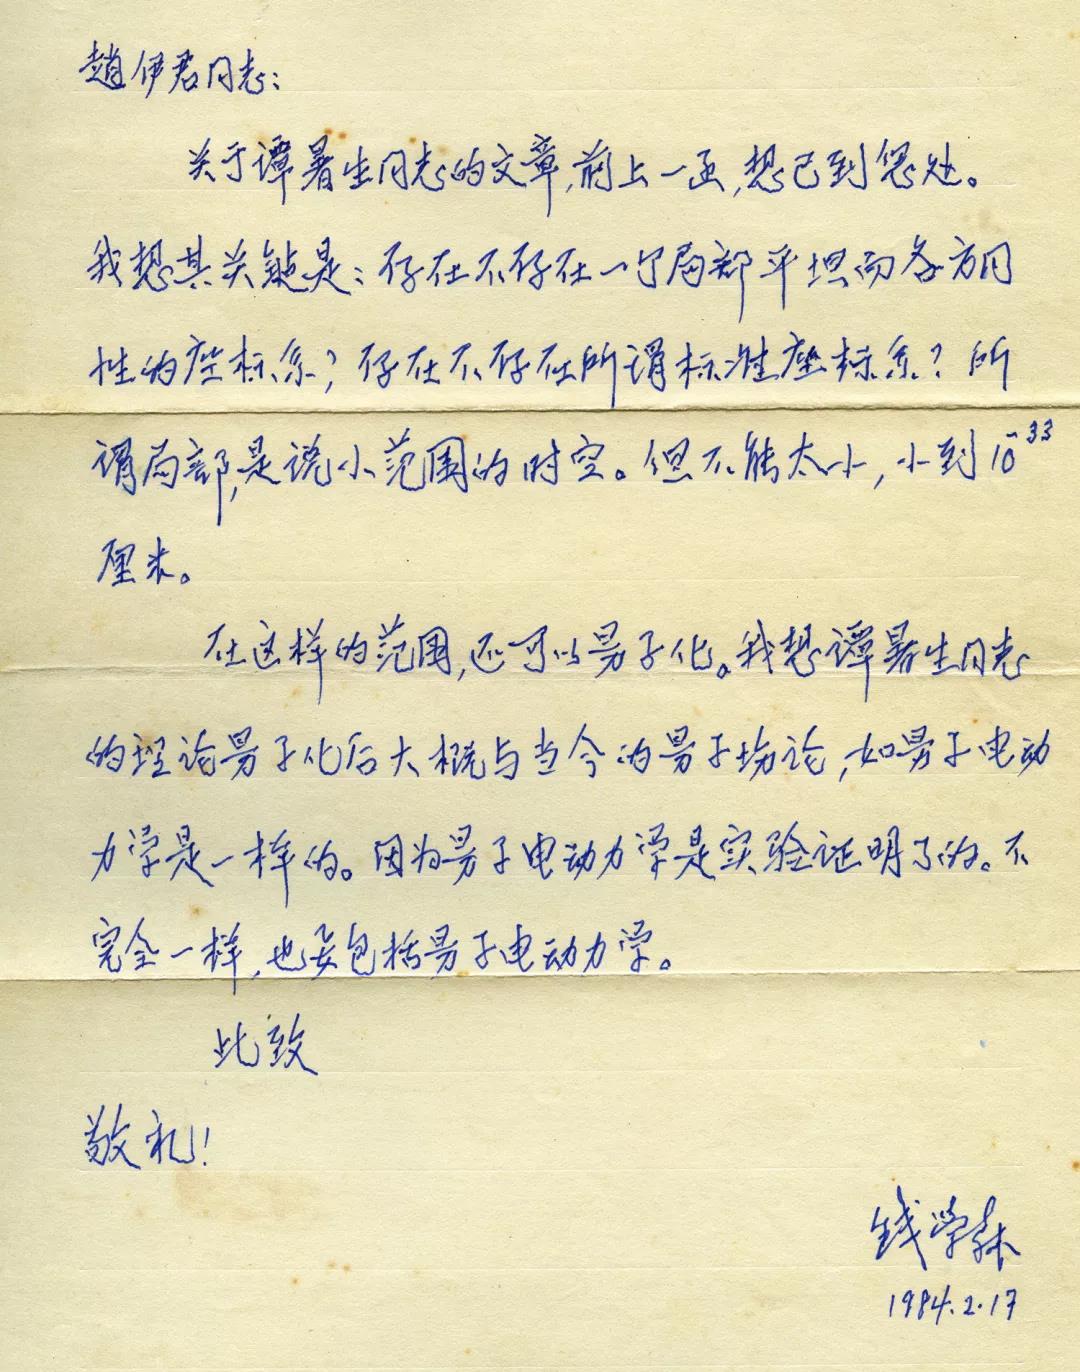 趙伊君同志：
关于谭暑生同志的文章，前上一函，想已到您处。
我想其关键是：存在不存在一个局部平坦而各方同
性的座标系？存在不存在所谓标准座标系？所
谓局部，是说小范围的时空。但不能太小，小到10⁻³³
厘米。
在这样的范围，还可以量子化。我想谭暑生同志
的理论量子化后大概与当今的量子场论，如量子电动
力学是一样的。因为量子电动力学是实验证明了的。不
完全一样，也要包括量子电动力学。
此致
敬礼！
钱学森
1984.2.17